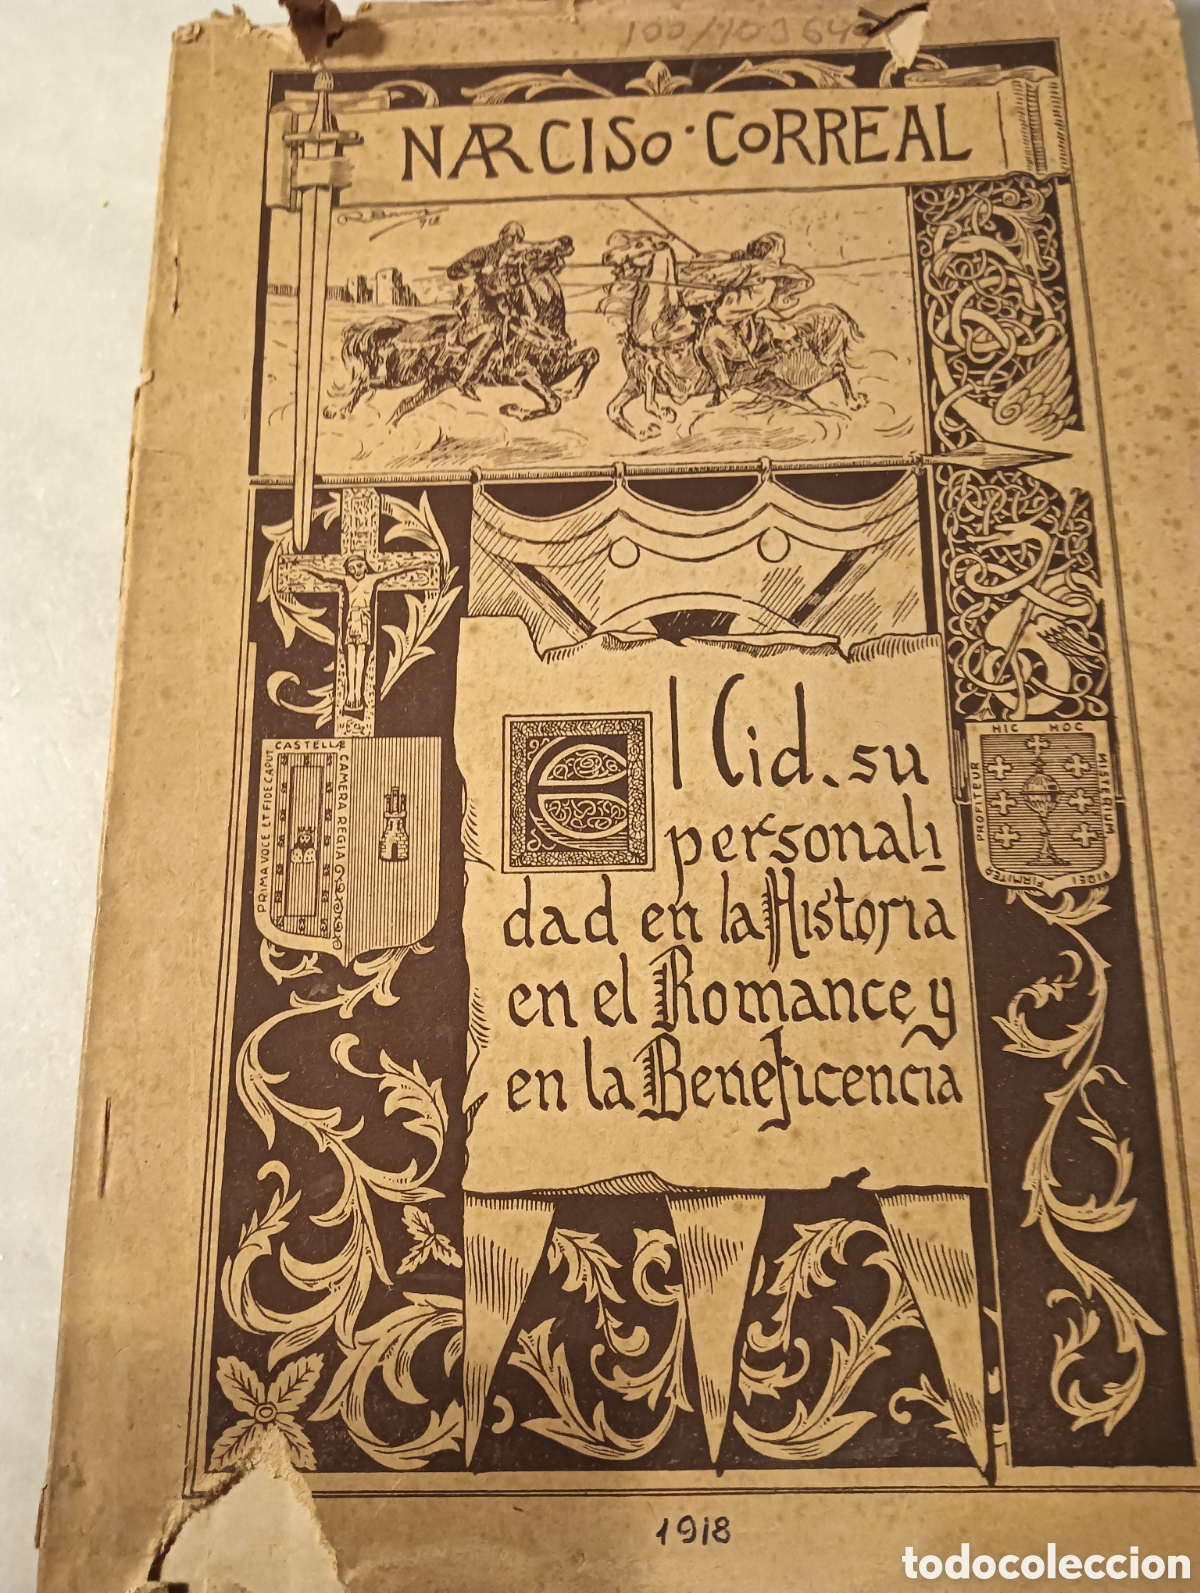 NARCISO·CORREAL
El Cid. su
personali
dad en la Historia
en el Romance y
en la Beneficencia
PRIMA VOCE ET FIDE CAPUT
CASTELLÆ
CAMERA REGIA
PROFITEUR
HIC HOC
MISTERIUM
FIDEI
FIRMITER
1918
todocoleccion